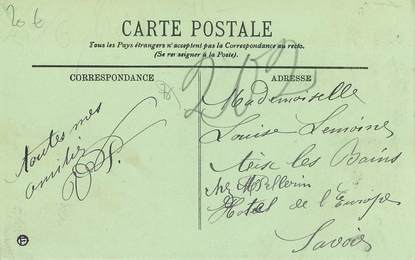 20 €
CARTE POSTALE
Tous les Pays étrangers n'acceptent pas la Correspondance au recto.
(Se renseigner à la Poste).
CORRESPONDANCE
ADRESSE
toutes mes
amitiés
Mademoiselle
Louise Lemoine
Aix les Bains
chez M Pellerin
Hotel de l'Europe
Savoie